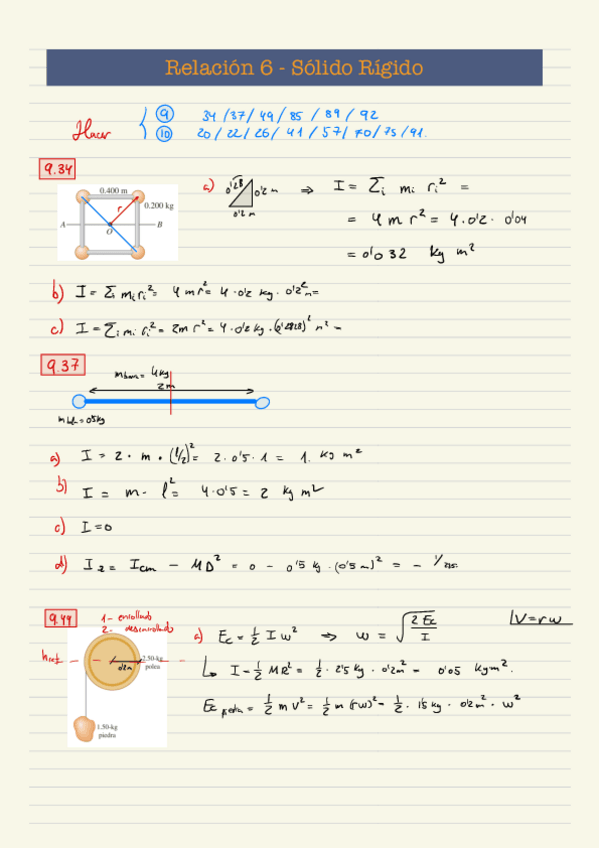 Relación 6 - Sólido Rígido
Hacer
9 34 / 37 / 49 / 85 / 89 / 92
10 20 / 22 / 26 / 41 / 57 / 70 / 75 / 91.
9.34
0.400 m
0.200 kg
r
A
O
B
a) 0'28 0'2 m 0'2 m ⇒ I = Σi mi ri² =
= 4 m r² = 4 · 0'2 · 0'04
= 0'032 kg m²
b) I = Σi mi ri² = 4 m r² = 4 · 0'2 kg · 0'2² m =
c) I = Σi mi ri² = 2m r² = 4 · 0'2 kg · (0'2828)² m² =
9.37
m barra = 4 kg
2 m
= 0'5 kg
a) I = 2 · m · (l/2)² = 2 · 0'5 · 1 = 1. kg m²
b) I = m · l² = 4 · 0'5 = 2 kg m²
c) I = 0
d) I2 = Icm − MD² = 0 − 0'5 kg · (0'5 m)² = −
9.49
1- enrollado
2- desenrollado
0'2m
2.50-kg
polea
1.50-kg
piedra
a) Ec = 1/2 I w² ⇒ w = √(2 Ec / I) V = r w
I = 1/2 MR² = 1/2 · 2'5 kg · 0'2 m² = 0'05 kg m².
Ec piedra = 1/2 m V² = 1/2 m (rw)² = 1/2 · 1'5 kg · 0'2 m² · w²